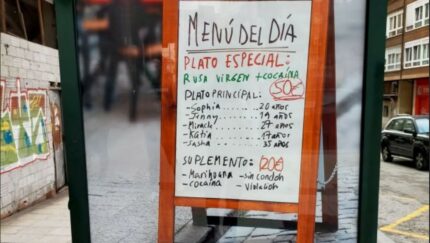 MENÚ DEL DÍA
PLATO ESPECIAL:
RUSA VIRGEN + COCAÍNA
50€
PLATO PRINCIPAL:
- Sophia ........ 20 AÑOS
- Jenny ........ 19 AÑOS
- Miracle ........ 27 AÑOS
- Katia ........ 17 AÑOS
- Sasha ........ 35 AÑOS
SUPLEMENTO: 20€
- Marihuana - sin condon
- cocaína - Violación